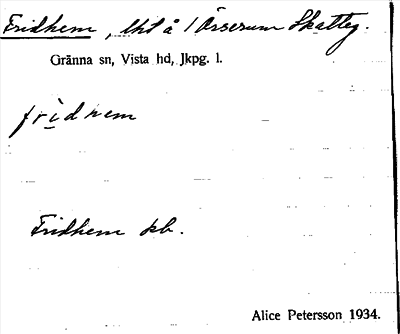 Fridhem, lht å 1 Örserum Skatteg.
Gränna sn, Vista hd, Jkpg. l.
fridhem
Fridhem kb.
Alice Petersson 1934.